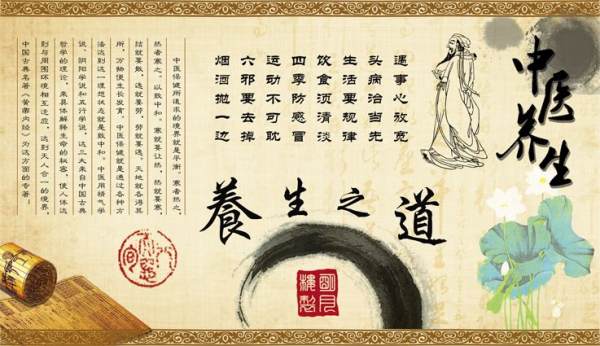 中医养生
遇事心放宽
头病治当先
生活要规律
饮食须清淡
四季防感冒
运动不可耽
六邪要去掉
烟酒抛一边
養生之道
中医保健所追求的境界就是平衡。寒者热之，
热者寒之，以致中和。寒就要让热，热就要寒，
结就要散，逸就要劳，劳就要逸。天地就各得其
所，万物便生长发育。中医保健就是通过各种方
法达到这一理想状态就是致中和。中医用精气学
说、阴阳学说和五行学说，这三大来自中国古典
哲学的理论，来具体解释生命的秘密，使人体达
到与周围环境相互适应，达到天人合一的境界。
中国古典名著《黄帝内经》为这方面的专著。